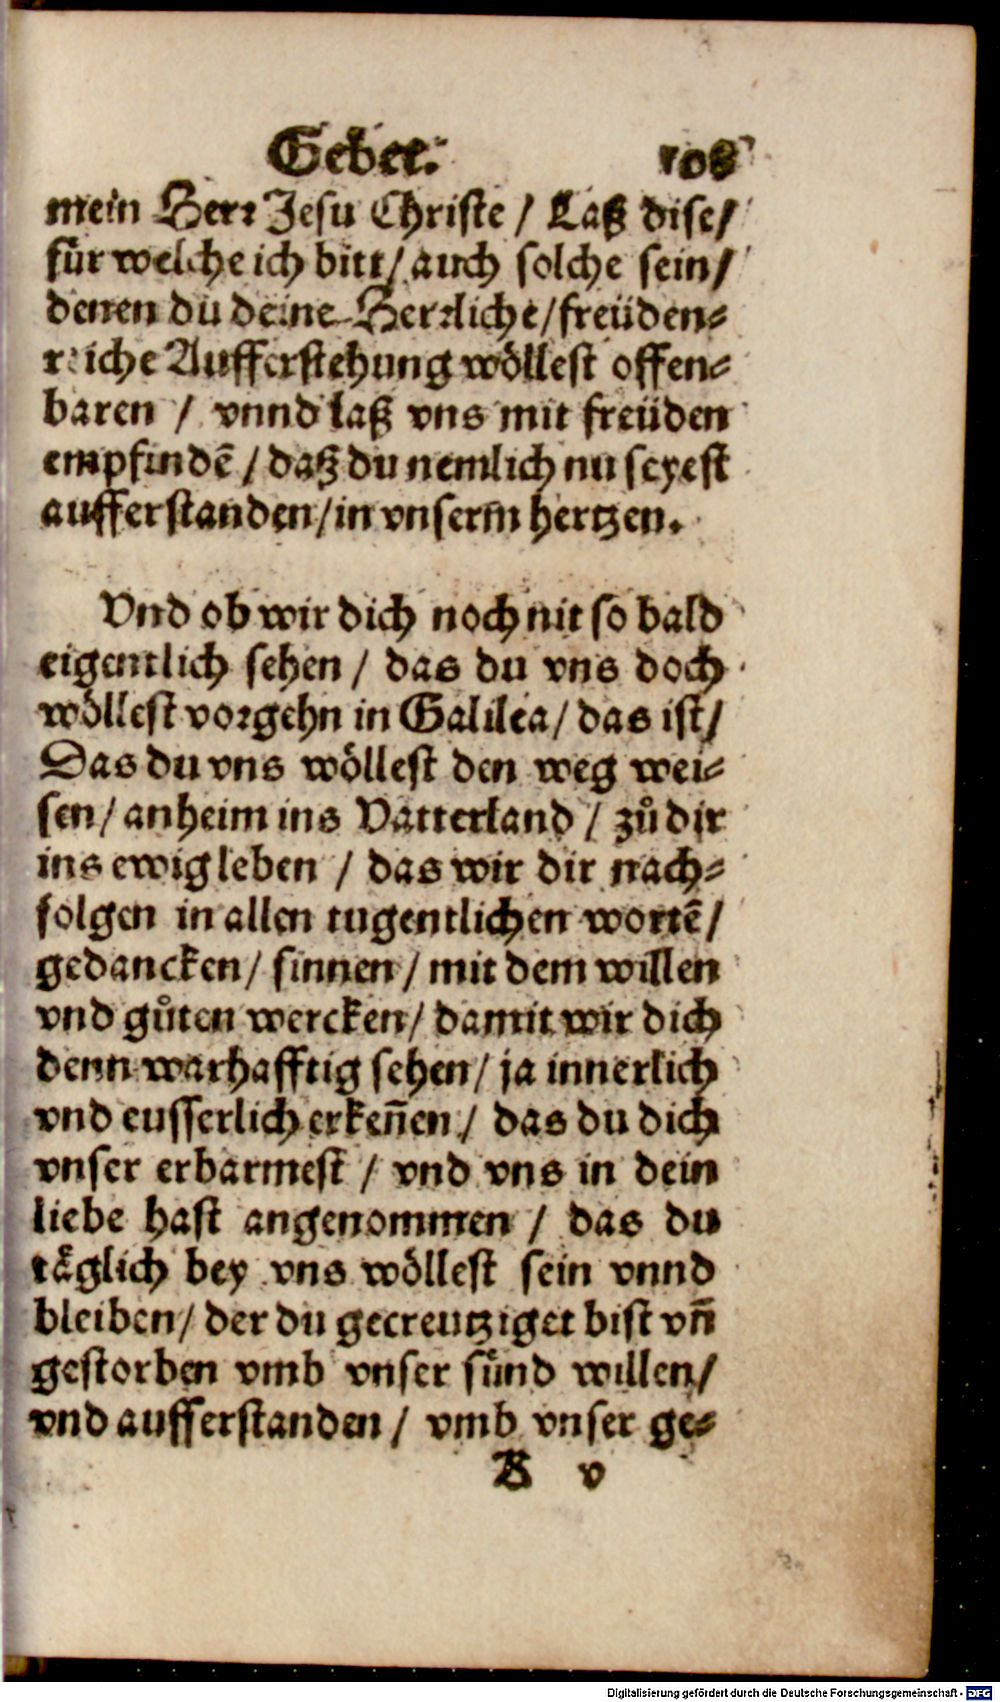 Gebet. 108
mein Herr Jesu Christe / Laß dise /
für welche ich bitt / auch solche sein /
denen du deine Herrliche / freüden⸗
reiche Aufferstehung wöllest offen⸗
baren / vnnd laß vns mit freüden
empfindē / daß du nemlich nu seyest
aufferstanden / in vnserm̃ hertzen.
Vnd ob wir dich noch nit so bald
eigentlich sehen / das du vns doch
wöllest vorgehn in Galilea / das ist /
Das du vns wöllest den weg wei⸗
sen / anheim ins Vatterland / zů dir
ins ewig leben / das wir dir nach⸗
folgen in allen tugentlichen wortē /
gedancken / sinnen / mit dem willen
vnd gůten wercken / damit wir dich
denn warhafftig sehen / ja innerlich
vnd eusserlich erkeñen / das du dich
vnser erbarmest / vnd vns in dein
liebe hast angenommen / das du
täglich bey vns wöllest sein vnnd
bleiben / der du gecreutziget bist vñ
gestorben vmb vnser sünd willen /
vnd aufferstanden / vmb vnser ge⸗
B v
Digitalisierung gefördert durch die Deutsche Forschungsgemeinschaft - DFG